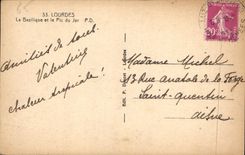 33. LOURDES
La Basilique et le Pic du Jer P.D.
Amitiés de tous
Valentine
chaleur tropicale!
Madame Michel
13 Rue Anatole de la Forge
Saint-Quentin
Aisne
20